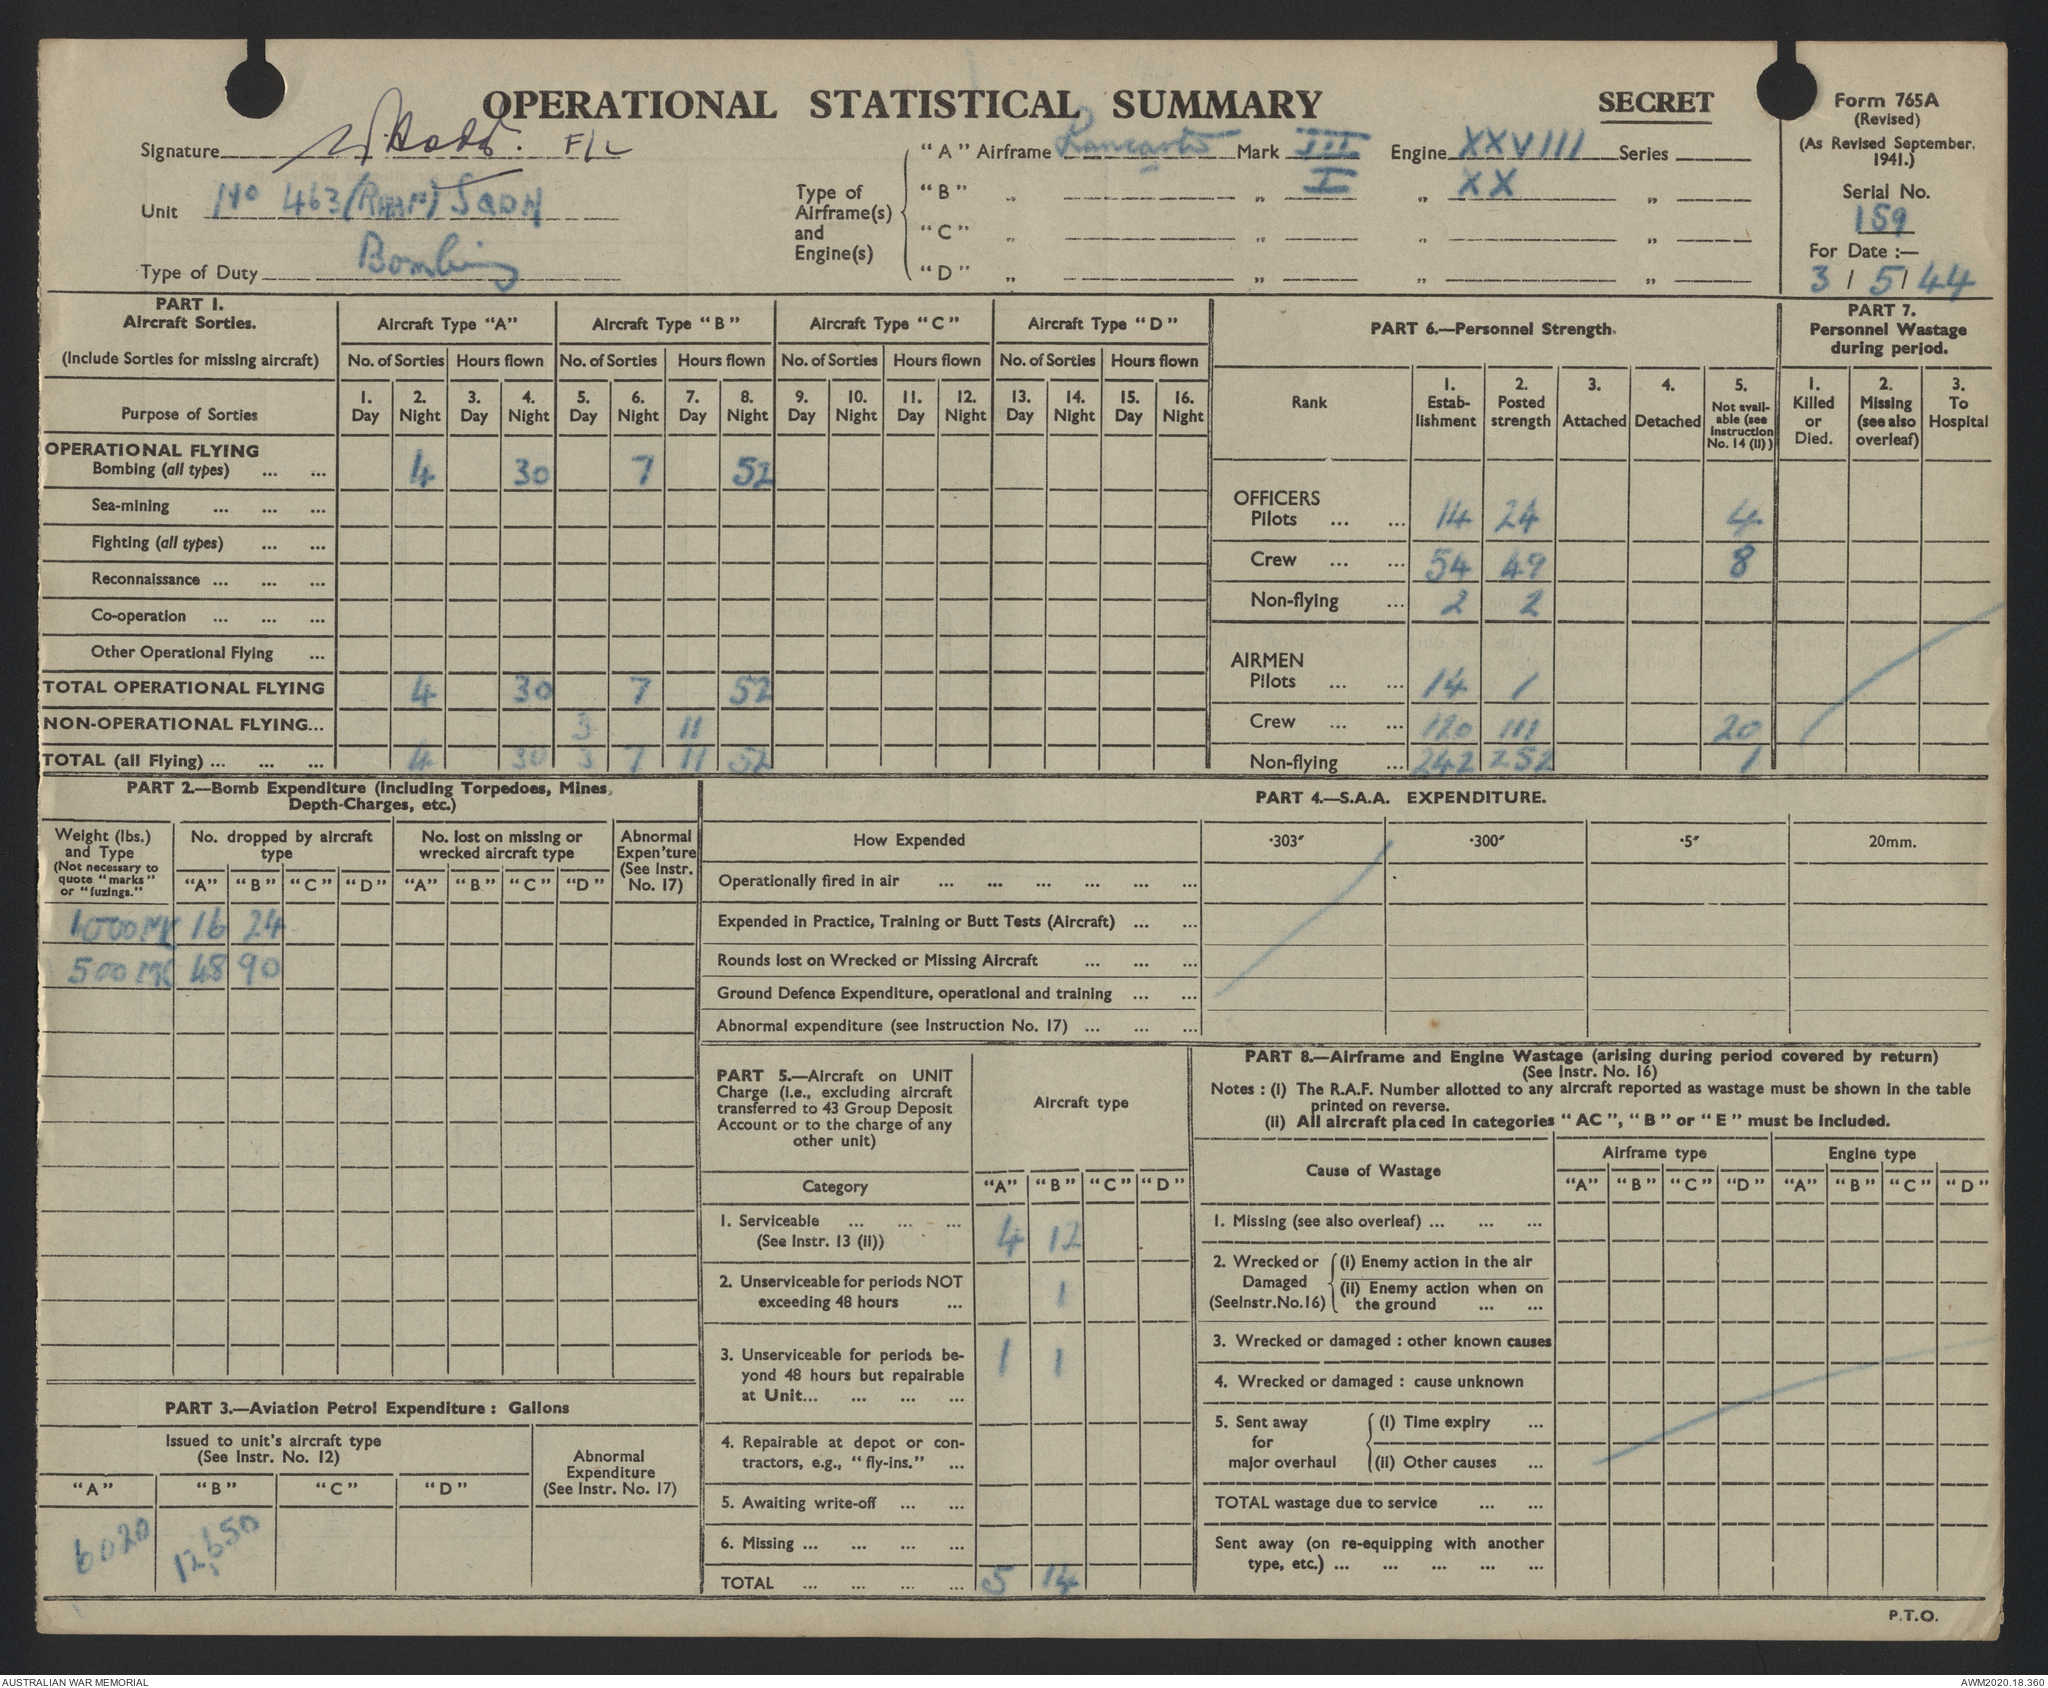 OPERATIONAL STATISTICAL SUMMARY
SECRET
Form 765A
(Revised)
(As Revised September, 1941.)
Serial No.
159
For Date :—
3 / 5 / 44
Signature F/L
Unit No 463 (RAAF) SQDN
Type of Duty Bombing
Type of Airframe(s) and Engine(s)
"A" Airframe Lancaster Mark III Engine XXVIII Series
"B" „ „ I „ XX „
"C" „ „ „ „
"D" „ „ „ „
PART 1.
Aircraft Sorties.
(Include Sorties for missing aircraft)
Aircraft Type "A" Aircraft Type "B" Aircraft Type "C" Aircraft Type "D"
No. of Sorties Hours flown No. of Sorties Hours flown No. of Sorties Hours flown No. of Sorties Hours flown
Purpose of Sorties
1. Day 2. Night 3. Day 4. Night 5. Day 6. Night 7. Day 8. Night 9. Day 10. Night 11. Day 12. Night 13. Day 14. Night 15. Day 16. Night
OPERATIONAL FLYING
Bombing (all types) ... ... 4 30 7 52
Sea-mining ... ... ...
Fighting (all types) ... ...
Reconnaissance ... ... ...
Co-operation ... ... ...
Other Operational Flying ...
TOTAL OPERATIONAL FLYING 4 30 7 52
NON-OPERATIONAL FLYING... 3 11
TOTAL (all Flying) ... ... ... 4 30 3 7 11 52
PART 6.—Personnel Strength.
Rank
1. Estab-lishment
2. Posted strength
3. Attached
4. Detached
5. Not avail-able (see Instruction No. 14 (ii))
OFFICERS
Pilots ... ... 14 24 4
Crew ... ... 54 49 8
Non-flying ... 2 2
AIRMEN
Pilots ... ... 14 1
Crew ... ... 120 111 20
Non-flying ... 242 252 1
PART 7.
Personnel Wastage during period.
1. Killed or Died.
2. Missing (see also overleaf)
3. To Hospital
PART 2.—Bomb Expenditure (including Torpedoes, Mines, Depth-Charges, etc.)
Weight (lbs.) and Type
(Not necessary to quote "marks" or "fuzings."
No. dropped by aircraft type
No. lost on missing or wrecked aircraft type
Abnormal Expen'ture (See Instr. No. 17)
"A" "B" "C" "D" "A" "B" "C" "D"
1000 MC 16 24
500 MC 48 90
PART 3.—Aviation Petrol Expenditure : Gallons
Issued to unit's aircraft type
(See Instr. No. 12)
Abnormal Expenditure
(See Instr. No. 17)
"A" "B" "C" "D"
6020 12,650
PART 4.—S.A.A. EXPENDITURE.
How Expended ·303″ ·300″ ·5″ 20mm.
Operationally fired in air ... ... ... ... ... ...
Expended in Practice, Training or Butt Tests (Aircraft) ... ...
Rounds lost on Wrecked or Missing Aircraft ... ... ...
Ground Defence Expenditure, operational and training ... ...
Abnormal expenditure (see Instruction No. 17) ... ... ...
PART 5.—Aircraft on UNIT
Charge (i.e., excluding aircraft
transferred to 43 Group Deposit
Account or to the charge of any
other unit)
Aircraft type
Category "A" "B" "C" "D"
1. Serviceable ... ... ...
(See Instr. 13 (ii)) 4 12
2. Unserviceable for periods NOT
exceeding 48 hours ... 1
3. Unserviceable for periods be-
yond 48 hours but repairable
at Unit... ... ... ... 1 1
4. Repairable at depot or con-
tractors, e.g., "fly-ins." ...
5. Awaiting write-off ... ...
6. Missing ... ... ... ...
TOTAL ... ... ... ... 5 14
PART 8.—Airframe and Engine Wastage (arising during period covered by return)
(See Instr. No. 16)
Notes : (i) The R.A.F. Number allotted to any aircraft reported as wastage must be shown in the table
printed on reverse.
(ii) All aircraft placed in categories "AC", "B" or "E" must be included.
Cause of Wastage Airframe type Engine type
"A" "B" "C" "D" "A" "B" "C" "D"
1. Missing (see also overleaf) ... ... ...
2. Wrecked or Damaged (SeeInstr.No.16)
(i) Enemy action in the air
(ii) Enemy action when on the ground ... ...
3. Wrecked or damaged : other known causes
4. Wrecked or damaged : cause unknown
5. Sent away for major overhaul
(i) Time expiry ...
(ii) Other causes ...
TOTAL wastage due to service ... ...
Sent away (on re-equipping with another
type, etc.) ... ... ... ... ...
P.T.O.
AUSTRALIAN WAR MEMORIAL
AWM2020.18.360